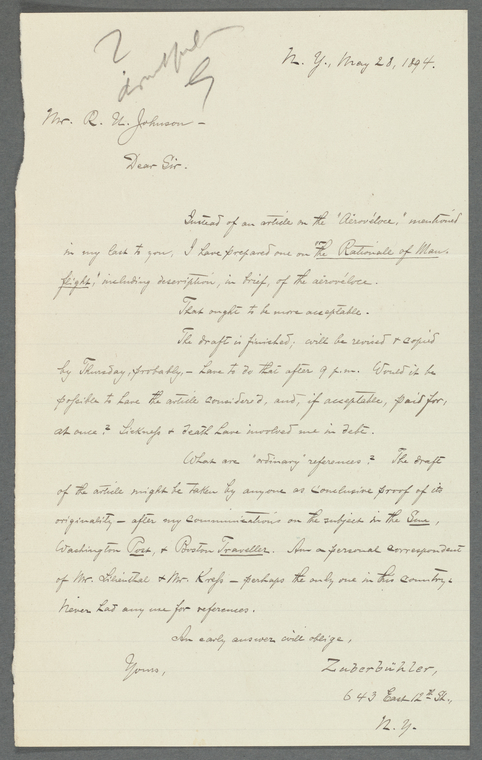 ?
doubtful
N. Y., May 28, 1894.
Mr. R. U. Johnson –
Dear Sir.
Instead of an article on the 'Aërovéloce,' mentioned
in my last to you, I have prepared one on 'the Rationale of Man-
flight,' including description, in brief, of the aërovéloce.
That ought to be more acceptable.
The draft is finished; will be revised & copied
by Thursday, probably, – have to do that after 9 p.m. Would it be
possible to have the article consider'd, and, if acceptable, paid for,
at once? Sickness & death have involved me in debt.
What are 'ordinary' references? The draft
of the article might be taken by anyone as conclusive proof of its
originality – after my communications on the subject in the Sun,
Washington Post, & Boston Traveller. Am a personal correspondent
of Mr. Lilienthal & Mr. Kress – perhaps the only one in this country.
Never had any use for references.
An early answer will oblige,
Yours,
Zuberbühler,
643 East 12th St.,
N. Y.